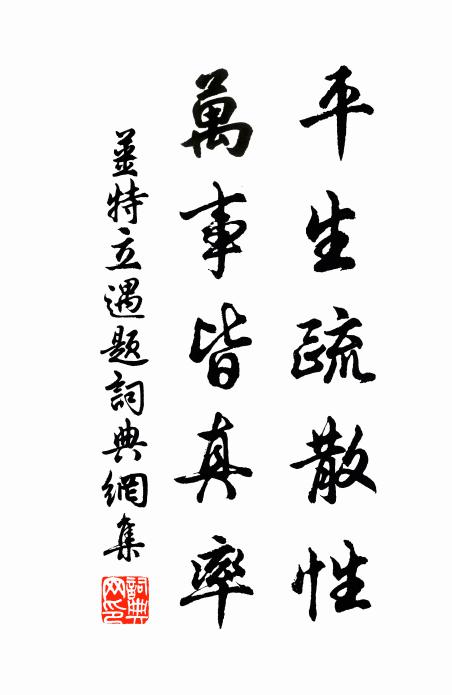 平生疏散性
萬事皆真率
姜特立遇題詞典網集
詞典